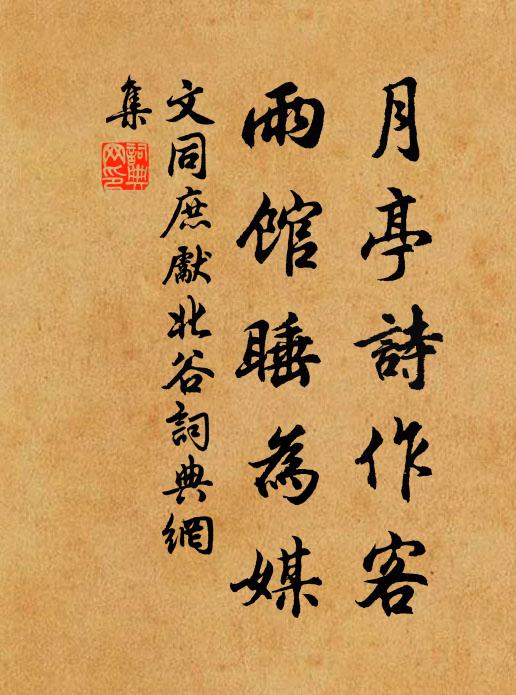 月亭詩作客
雨馆睡為媒
文同庶獻北谷詞典網
集
詞典网印